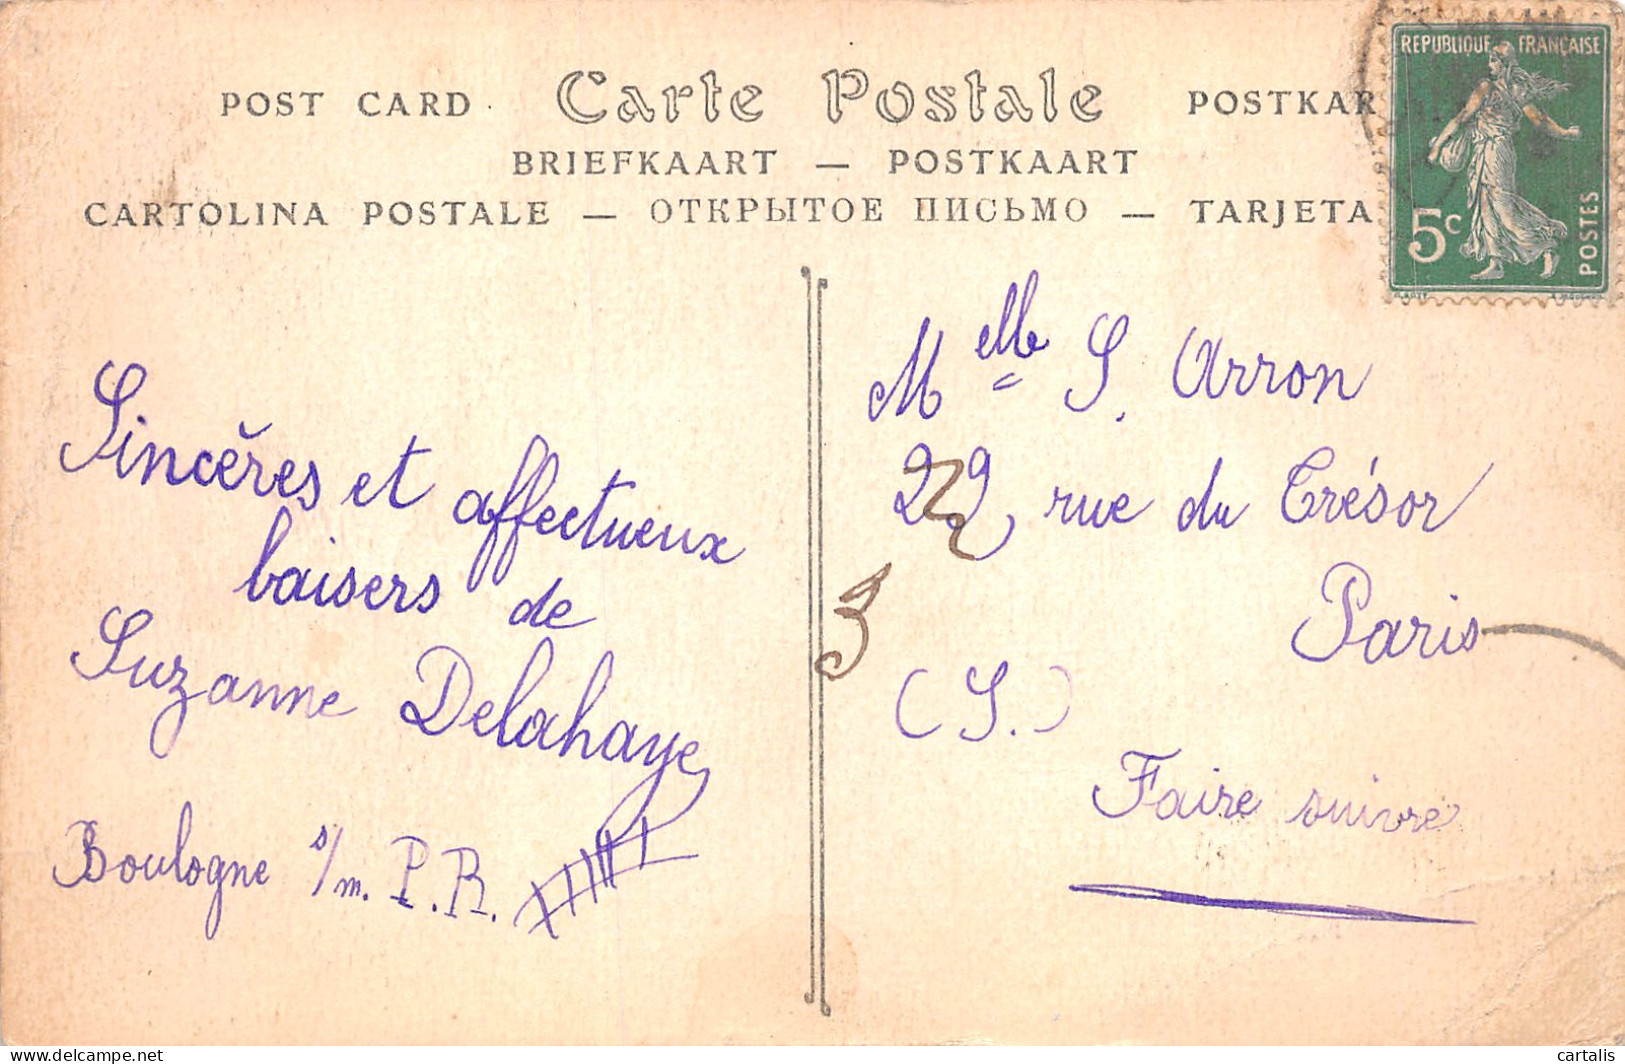 POST CARD Carte Postale POSTKAR
BRIEFKAART — POSTKAART
CARTOLINA POSTALE — ОТКРЫТОЕ ПИСЬМО — TARJETA
REPUBLIQUE FRANÇAISE
5c
POSTES
Sincères et affectueux
baisers de
Suzanne Delahaye
Boulogne s/m. P. R.
Melle S. Arron
22, rue du Trésor
Paris
(S.)
Faire suivre
3
cartalis
delcampe.net